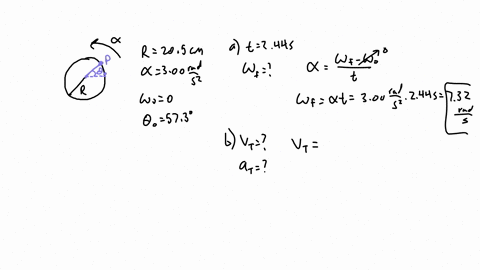 α
P
R
R = 20.5 cm
α = 3.00 rad/s²
ω₀ = 0
θ₀ = 57.3°
a) t = 2.44s
ω_f = ?
α = (ω_f - ω₀)/t
0
ω_f = αt = 3.00 rad/s² · 2.44s = 7.32 rad/s
b) V_T = ?
V_T =
a_T = ?